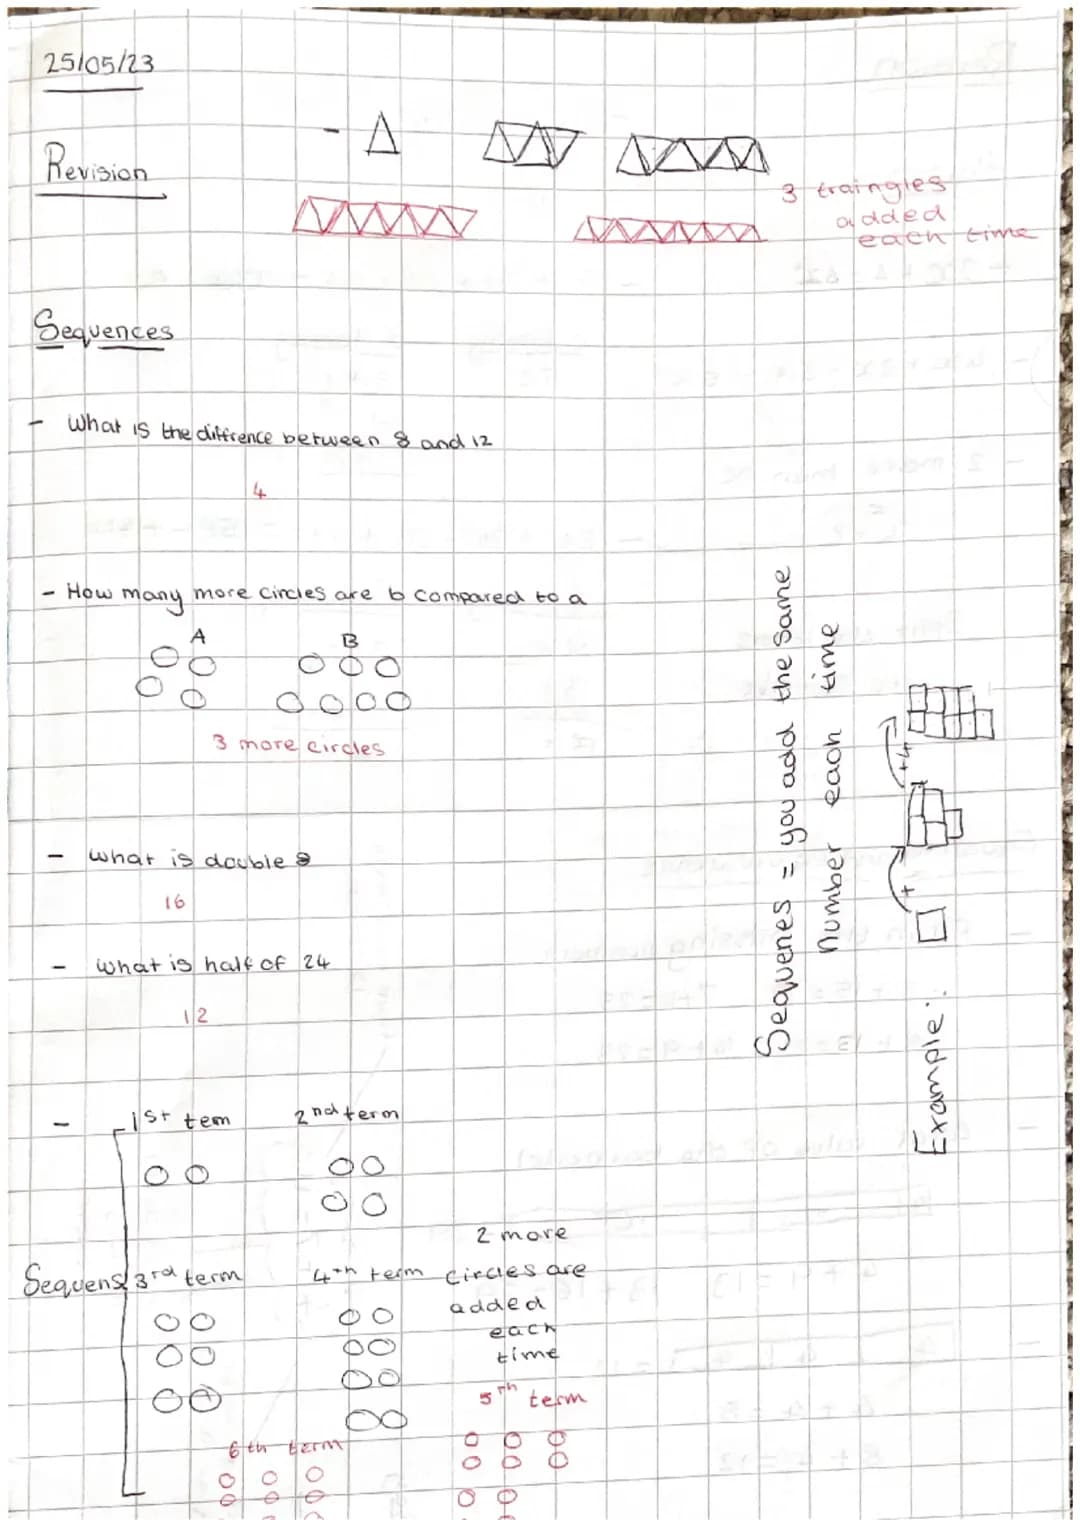 25/05/23
Revision
3 traingles
added
each time
Sequences
- What is the diffrence between 8 and 12
4
- How many more circles are b compared to a
A B
3 more circles
- what is double 8
16
- what is half of 24
12
- 1st tem 2nd term
2 more
Sequens 3rd term 4th term circles are
added
each
time
5th term
6th term
Sequenes = you add the same
number each time
Example:
+
+4